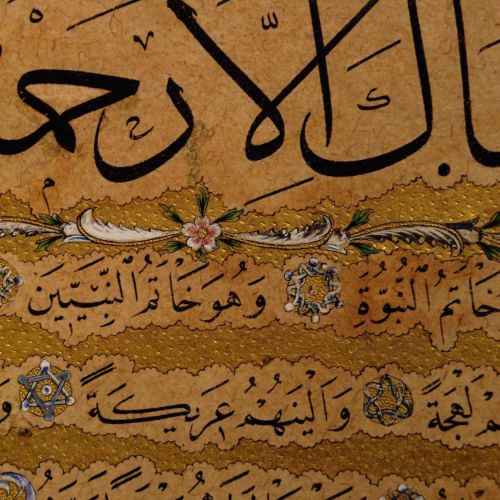 اكَ اِلَّا رَحْمـ
خَاتَمُ النُّبُوَّةِ وَهُوَ خَاتَمُ النَّبِيِّينَ
ـمْ لَهْجَةً وَاَلْيَنُهُمْ عَرِيكَةً وَ